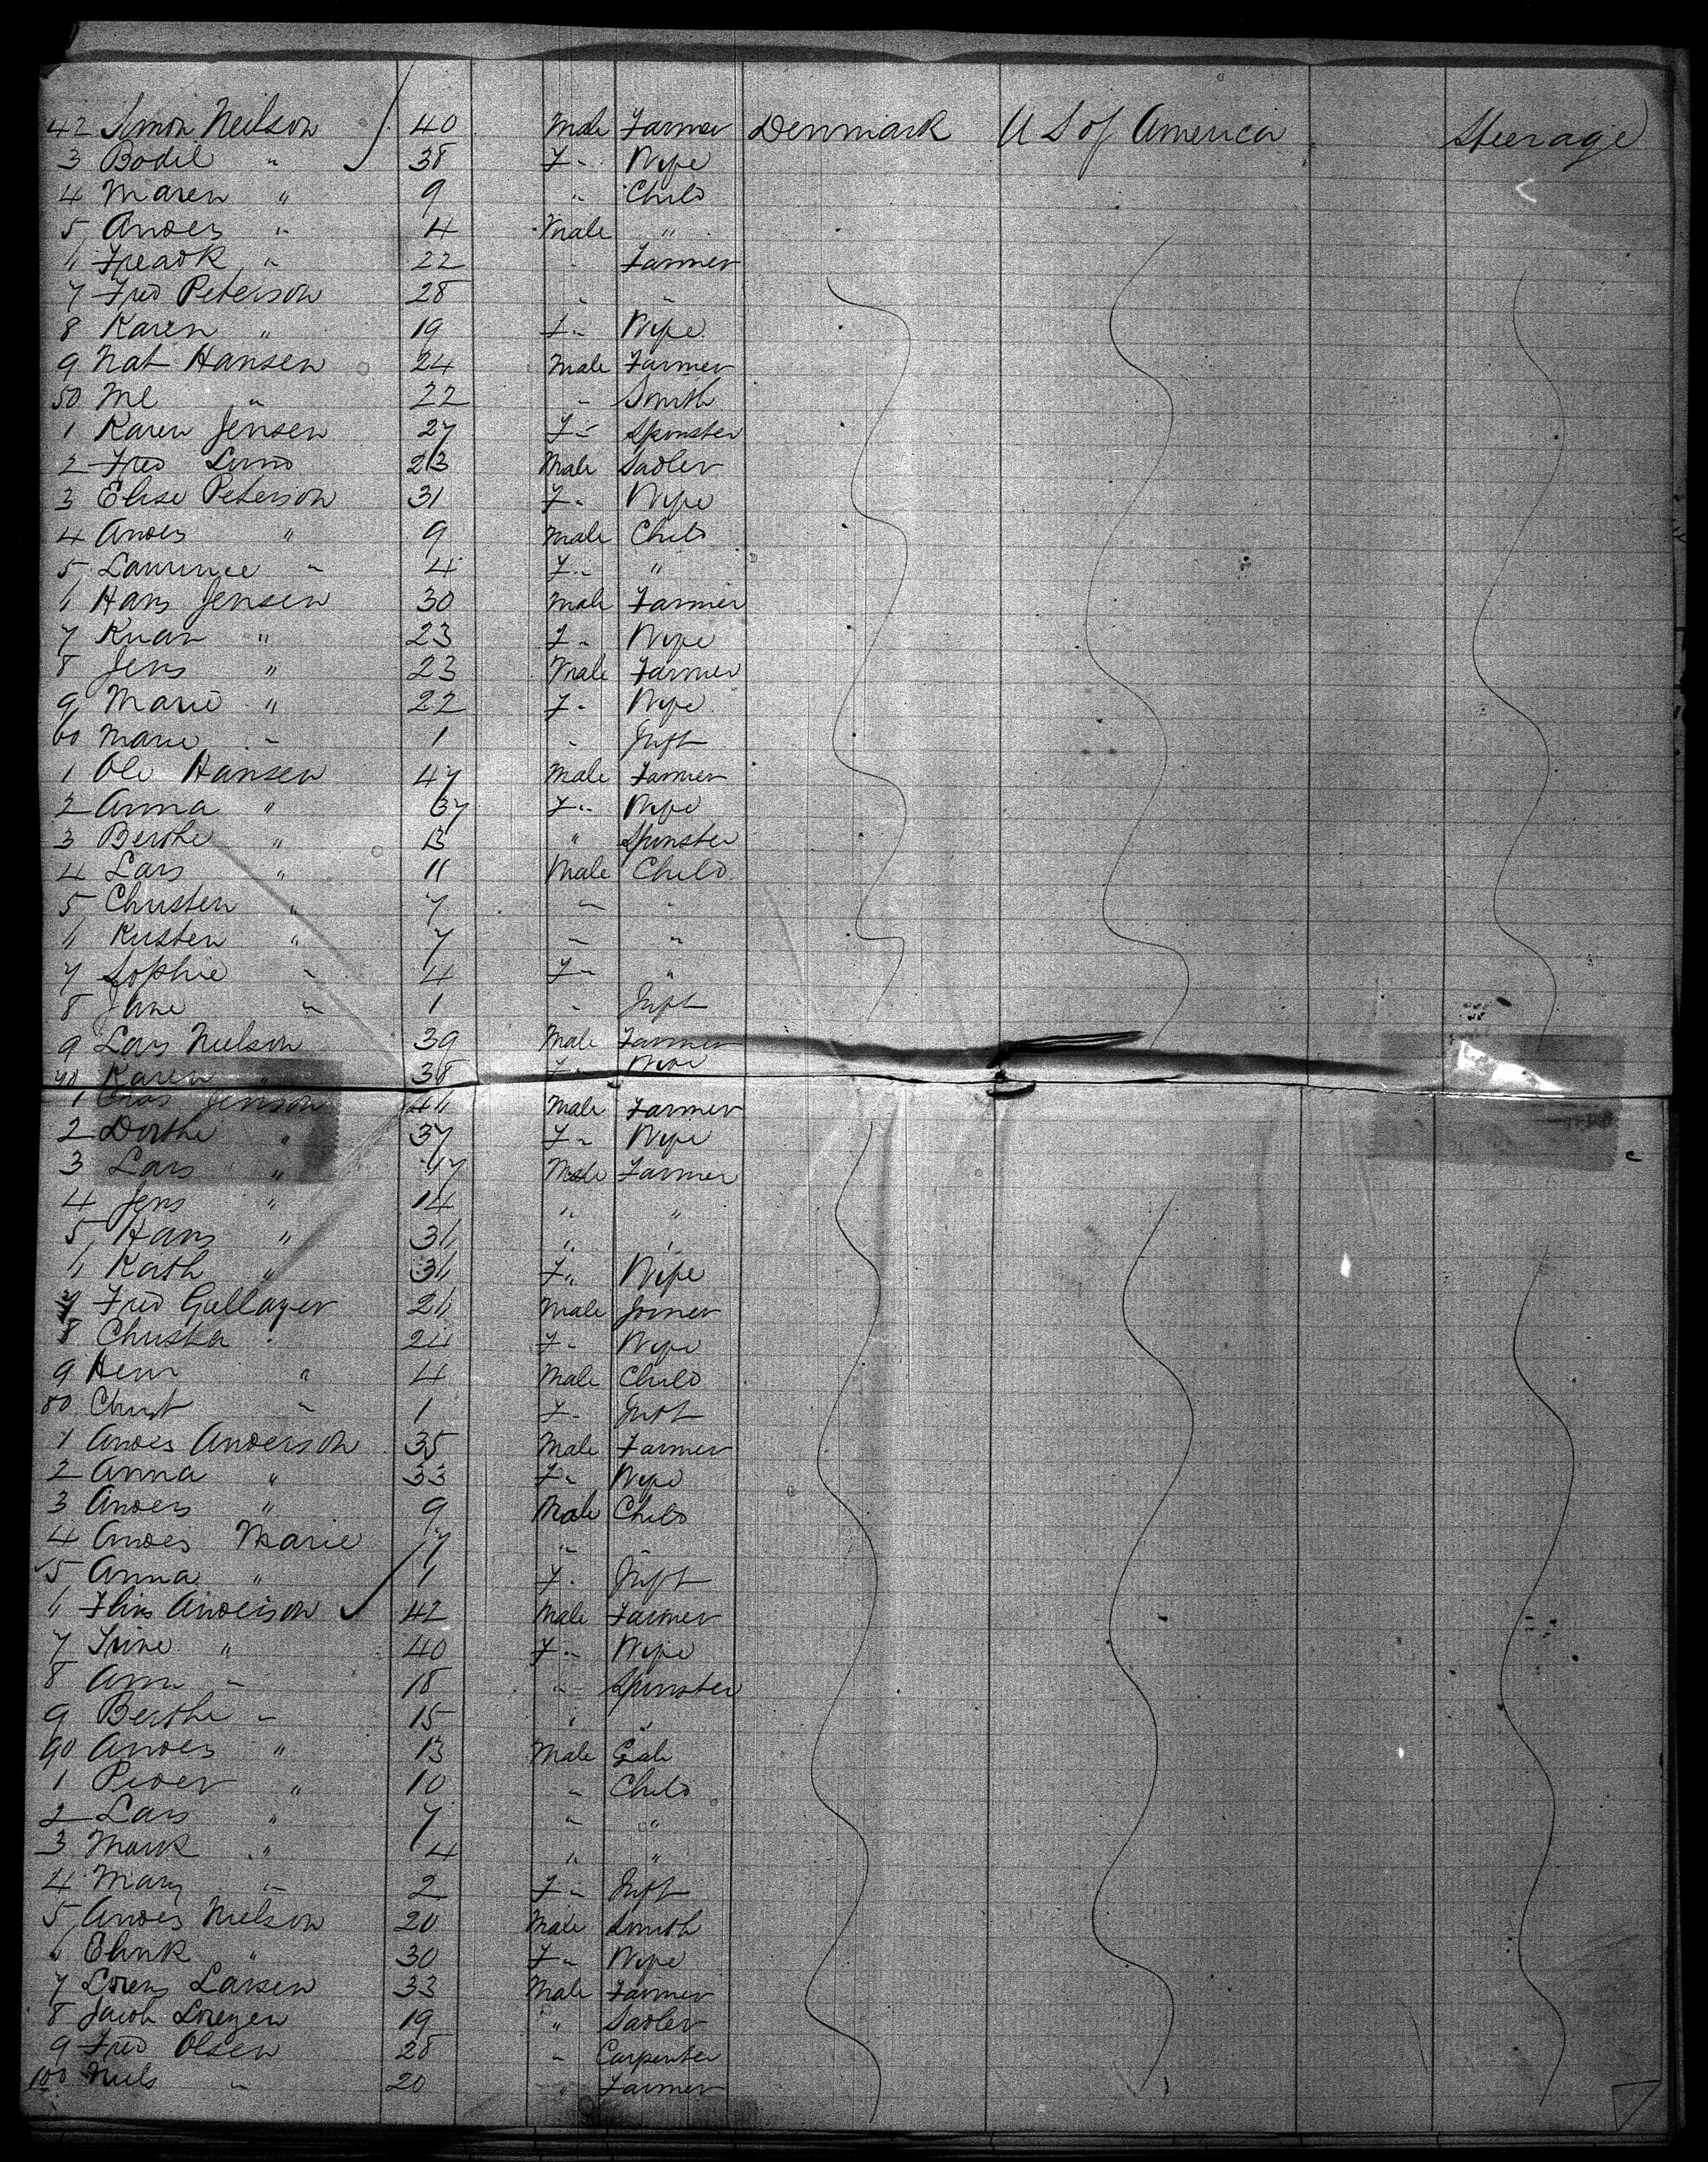 42 Simon Neilson 40 Male Farmer Denmark U S of America Steerage
3 Bodil " 38 F " Wife
4 Maren " 9 " Child
5 Andes " 4 Male "
6 Fredk " 22 " Farmer
7 Fred Peterson 28 " "
8 Karen " 19 F " Wife
9 Nat Hansen 24 Male Farmer
50 Ml " 22 " Smith
1 Karen Jensen 27 F " Spinster
2 Fred Lund 23 Male Sadler
3 Elise Peterson 31 F " Wife
4 Andes " 9 Male Child
5 Laurince " 4 F " "
6 Hans Jensen 30 Male Farmer
7 Knan " 23 F " Wife
8 Jens " 23 Male Farmer
9 Marie " 22 F " Wife
60 Marie " 1 " Inft
1 Ole Hansen 47 Male Farmer
2 Anna " 37 F " Wife
3 Berthe " 13 " Spinster
4 Lars " 11 Male Child
5 Christen " 7 " "
6 Kristen " 7 " "
7 Sophie " 4 F " "
8 Jane " 1 " Inft
9 Lars Neilson 39 Male Farmer
70 Karen " 38 F " Wife
1 Jenson 46 Male Farmer
2 Dorthe " 37 F " Wife
3 Lars " 17 Male Farmer
4 Jens " 14 " "
5 Hans " 36 " "
6 Kath " 36 F " Wife
7 Fred Gullager 26 Male Joiner
8 Christa " 24 F " Wife
9 Henr " 4 Male Child
80 Christ " 1 F " Inft
1 Andes Anderson 35 Male Farmer
2 Anna " 33 F " Wife
3 Anders " 9 Male Child
4 Andes Marie 7 " "
5 Anna " 1 F " Inft
6 Hans Anderson 42 Male Farmer
7 Trine " 40 F " Wife
8 Ann " 18 " Spinster
9 Berthe " 15 " "
90 Andes " 13 Male
1 Peder " 10 " Child
2 Lars " 7 " "
3 Mark " 4 " "
4 Mary " 2 F " Inft
5 Andes Nielson 20 Male Smith
6 Elink " 30 F " Wife
7 Lorens Larsen 33 Male Farmer
8 Jacob Lorezen 19 " Sadler
9 Fred Olsen 28 " Carpenter
100 Niels " 20 " Farmer